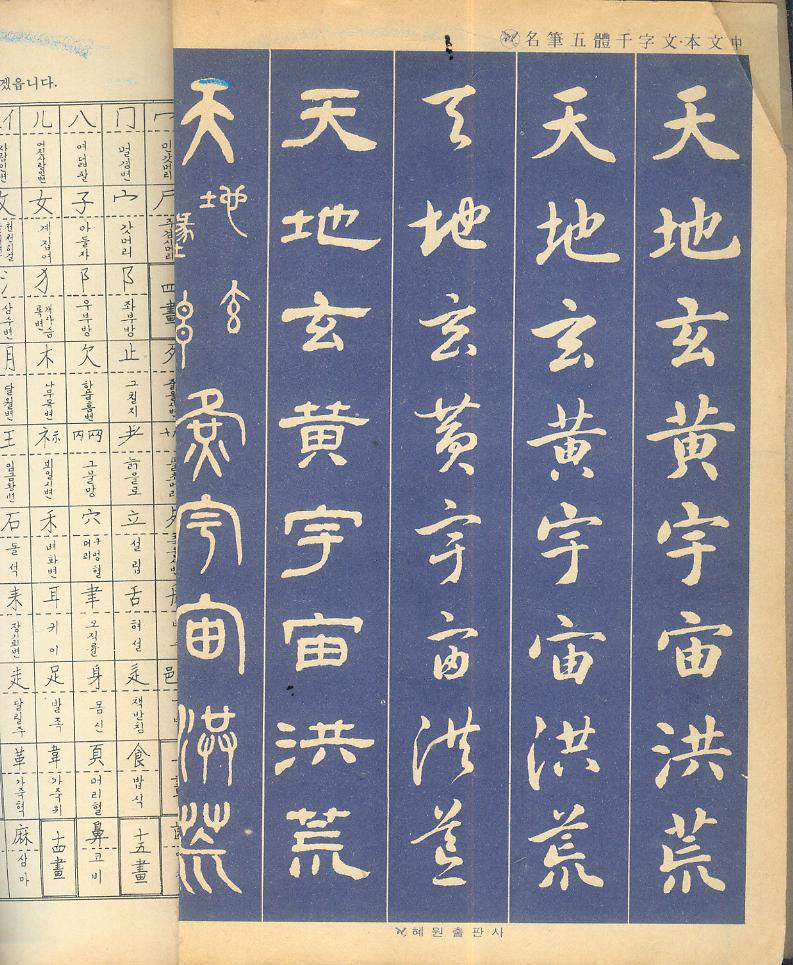 겠읍니다.
亻 儿 八 冂 冖
사람인변 어진사람인변 여덟팔 멀경변 민갓머리
女 子 宀 尸
계집여 아들자 갓머리 주검시머리
氵 犭 阝 阝 四畫
삼수변 개사슴록변 우부방 좌부방
月 木 欠 止 歹
달월변 나무목변 하품흠변 그칠지
王 礻示 网 耂
임금왕변 보일시변 그물망 늙을로
石 禾 穴 立
돌석 벼화변 구멍혈머리 설립
耒 耳 聿 舌
장기뢰변 귀이 오직률 혀설
走 足 身 辶 邑
달릴주 발족 몸신 책받침
革 韋 頁 食
가죽혁 가죽위 머리혈 밥식
麻 十四畫 鼻 十五畫
삼마 코비
名筆五體千字文·本文中
天地玄黃宇宙洪荒
天地玄黃宇宙洪荒
天地玄黃宇宙洪荒
天地玄黃宇宙洪荒
天地玄黃宇宙洪荒
혜원출판사